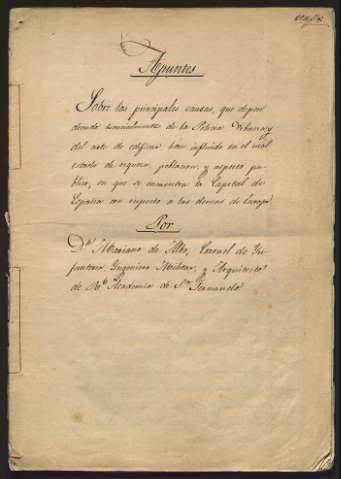 Apuntes
Sobre las principales causas, que depen
diendo esencialmente de la Policia Urbana y
del arte de edificar han influido en el mal
estado de riqueza, poblacion, y aspecto pu
blico, en que se encuentra la Capital de
España con respecto a las demas de Europa
Por
Dn. Mariano de Albo, Coronel de In
fanteria, Ingeniero Militar, y Arquitecto
de Rl. Academia de Sn. Fernando